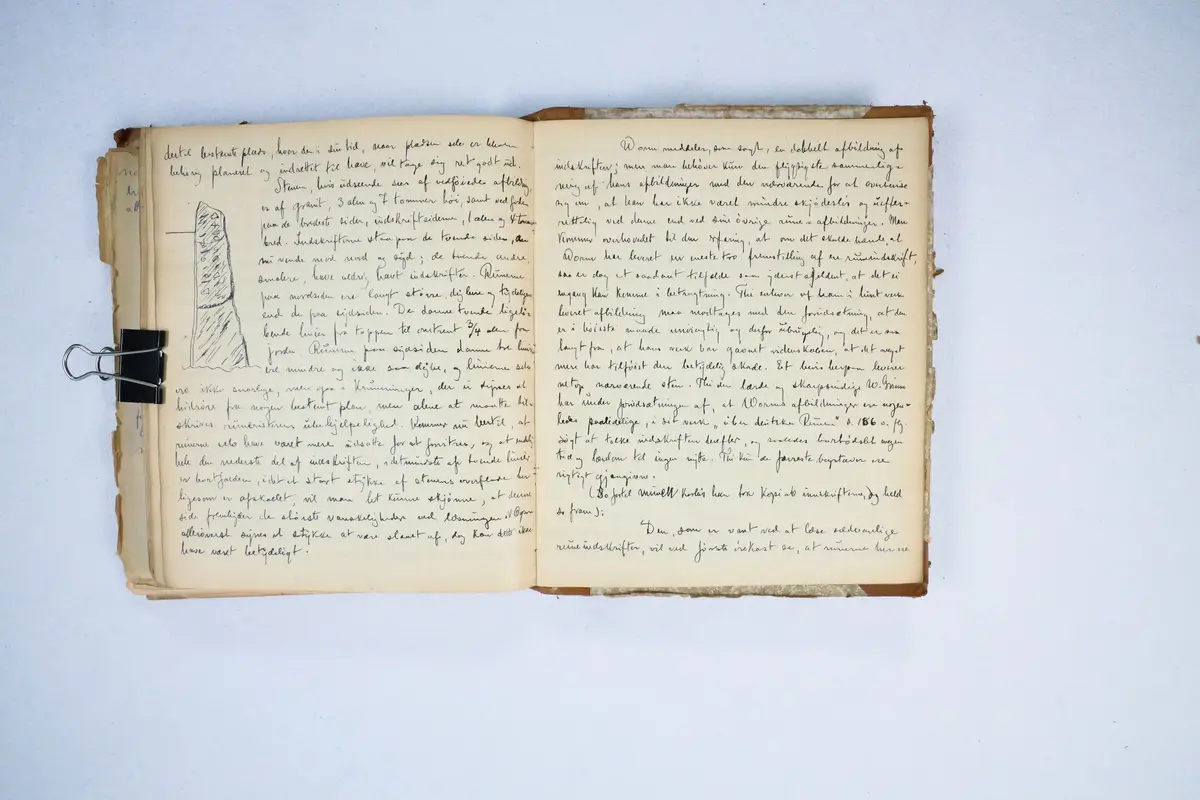 dertil bestemte plads, hvor den i sin tid, naar pladsen selv er bleven
behörig planeret og indrettet til have, vil tage sig ret godt ud.
Stenen, hvis udseende sees af vedföiede afbildning,
er af granit, 3 alen og 7 tommer höi, samt ved foden
paa de bredeste sider, indskriftsiderne, 1 alen og 4 tommer
bred. Indskrifterne staa paa de tvende sider, der
nu vende mod nord og syd; de tvende andre,
smalere, have aldrig havt indskrifter. Runerne
paa nordsiden ere langt större, dybere og tydeligere
end de paa sydsiden. De danne tvende lige lö-
bende linier fra toppen til omtrent 3/4 alen fra
jorden. Runerne paa sydsiden danne tre linier
ere mindre og ikke saa dybe, og linierne selv
ere ikke snorlige, men gaa i krumninger, der ei synes at
hidröre fra nogen bestemt plan, men alene at maatte til-
skrives runeristerens ubehjelpelighed. Kommer nu hertil, at
runerne selv have været mere udsatte for at forvitres, og at endelig
hele den nederste del af indskriften, i det mindste af tvende linier
er bortfalden, idet et stort stykke af stenens overflade her
ligesom er afskallet, vil man let kunne skjönne, at denne
side frembyder de störste vanskeligheder ved læsningen.
alleröverst synes et stykke at være slaaet af, dog kan dette ikke
have været betydeligt.
Worm meddeler, som sagt, en dobbelt afbildning af
indskriften; men man behöver kun den flygtigste sammenlig-
ning af hans afbildninger med den nærværende for at overbevise
sig om, at han har ikke været mindre skjödeslös og uefter-
rettelig ved denne end ved sine övrige rune-afbildninger. Man
kommer overhovedet til den erfaring, at om det skulde hænde, at
Worm har leveret en eneste tro fremstilling af en runeindskrift,
saa er dog et saadant tilfælde saa yderst sjeldent, at det ei
engang kan komme i betragtning. Thi enhver af ham i hint verk
leveret afbildning maa modtages med den forudsætning, at den
er i höieste maade unöiagtig og derfor ubrugelig, og det er saa
langt fra, at hans verk har gavnet videnskaben, at det meget
mer har tilföiet den betydelig skade. Et bevis herpaa leverer
netop nærværende sten. Thi den lærde og skarpsindige W. Grimm
har under forudsætningen af, at Worms afbildninger ere nogen-
ledes paalidelige, i sit verk "über deutsche Runen" s. 186 o. flg.
sögt at tolke indskriften derefter, og saaledes bortödslet megen
tid og lærdom til ingen nytte. Thi kun de færreste bogstaver ere
rigtigt gjengivne.
so fram):
Den, som er vant ved at læse sædvanlige
runeindskrifter, vil ved förste öiekast se, at runerne her ere